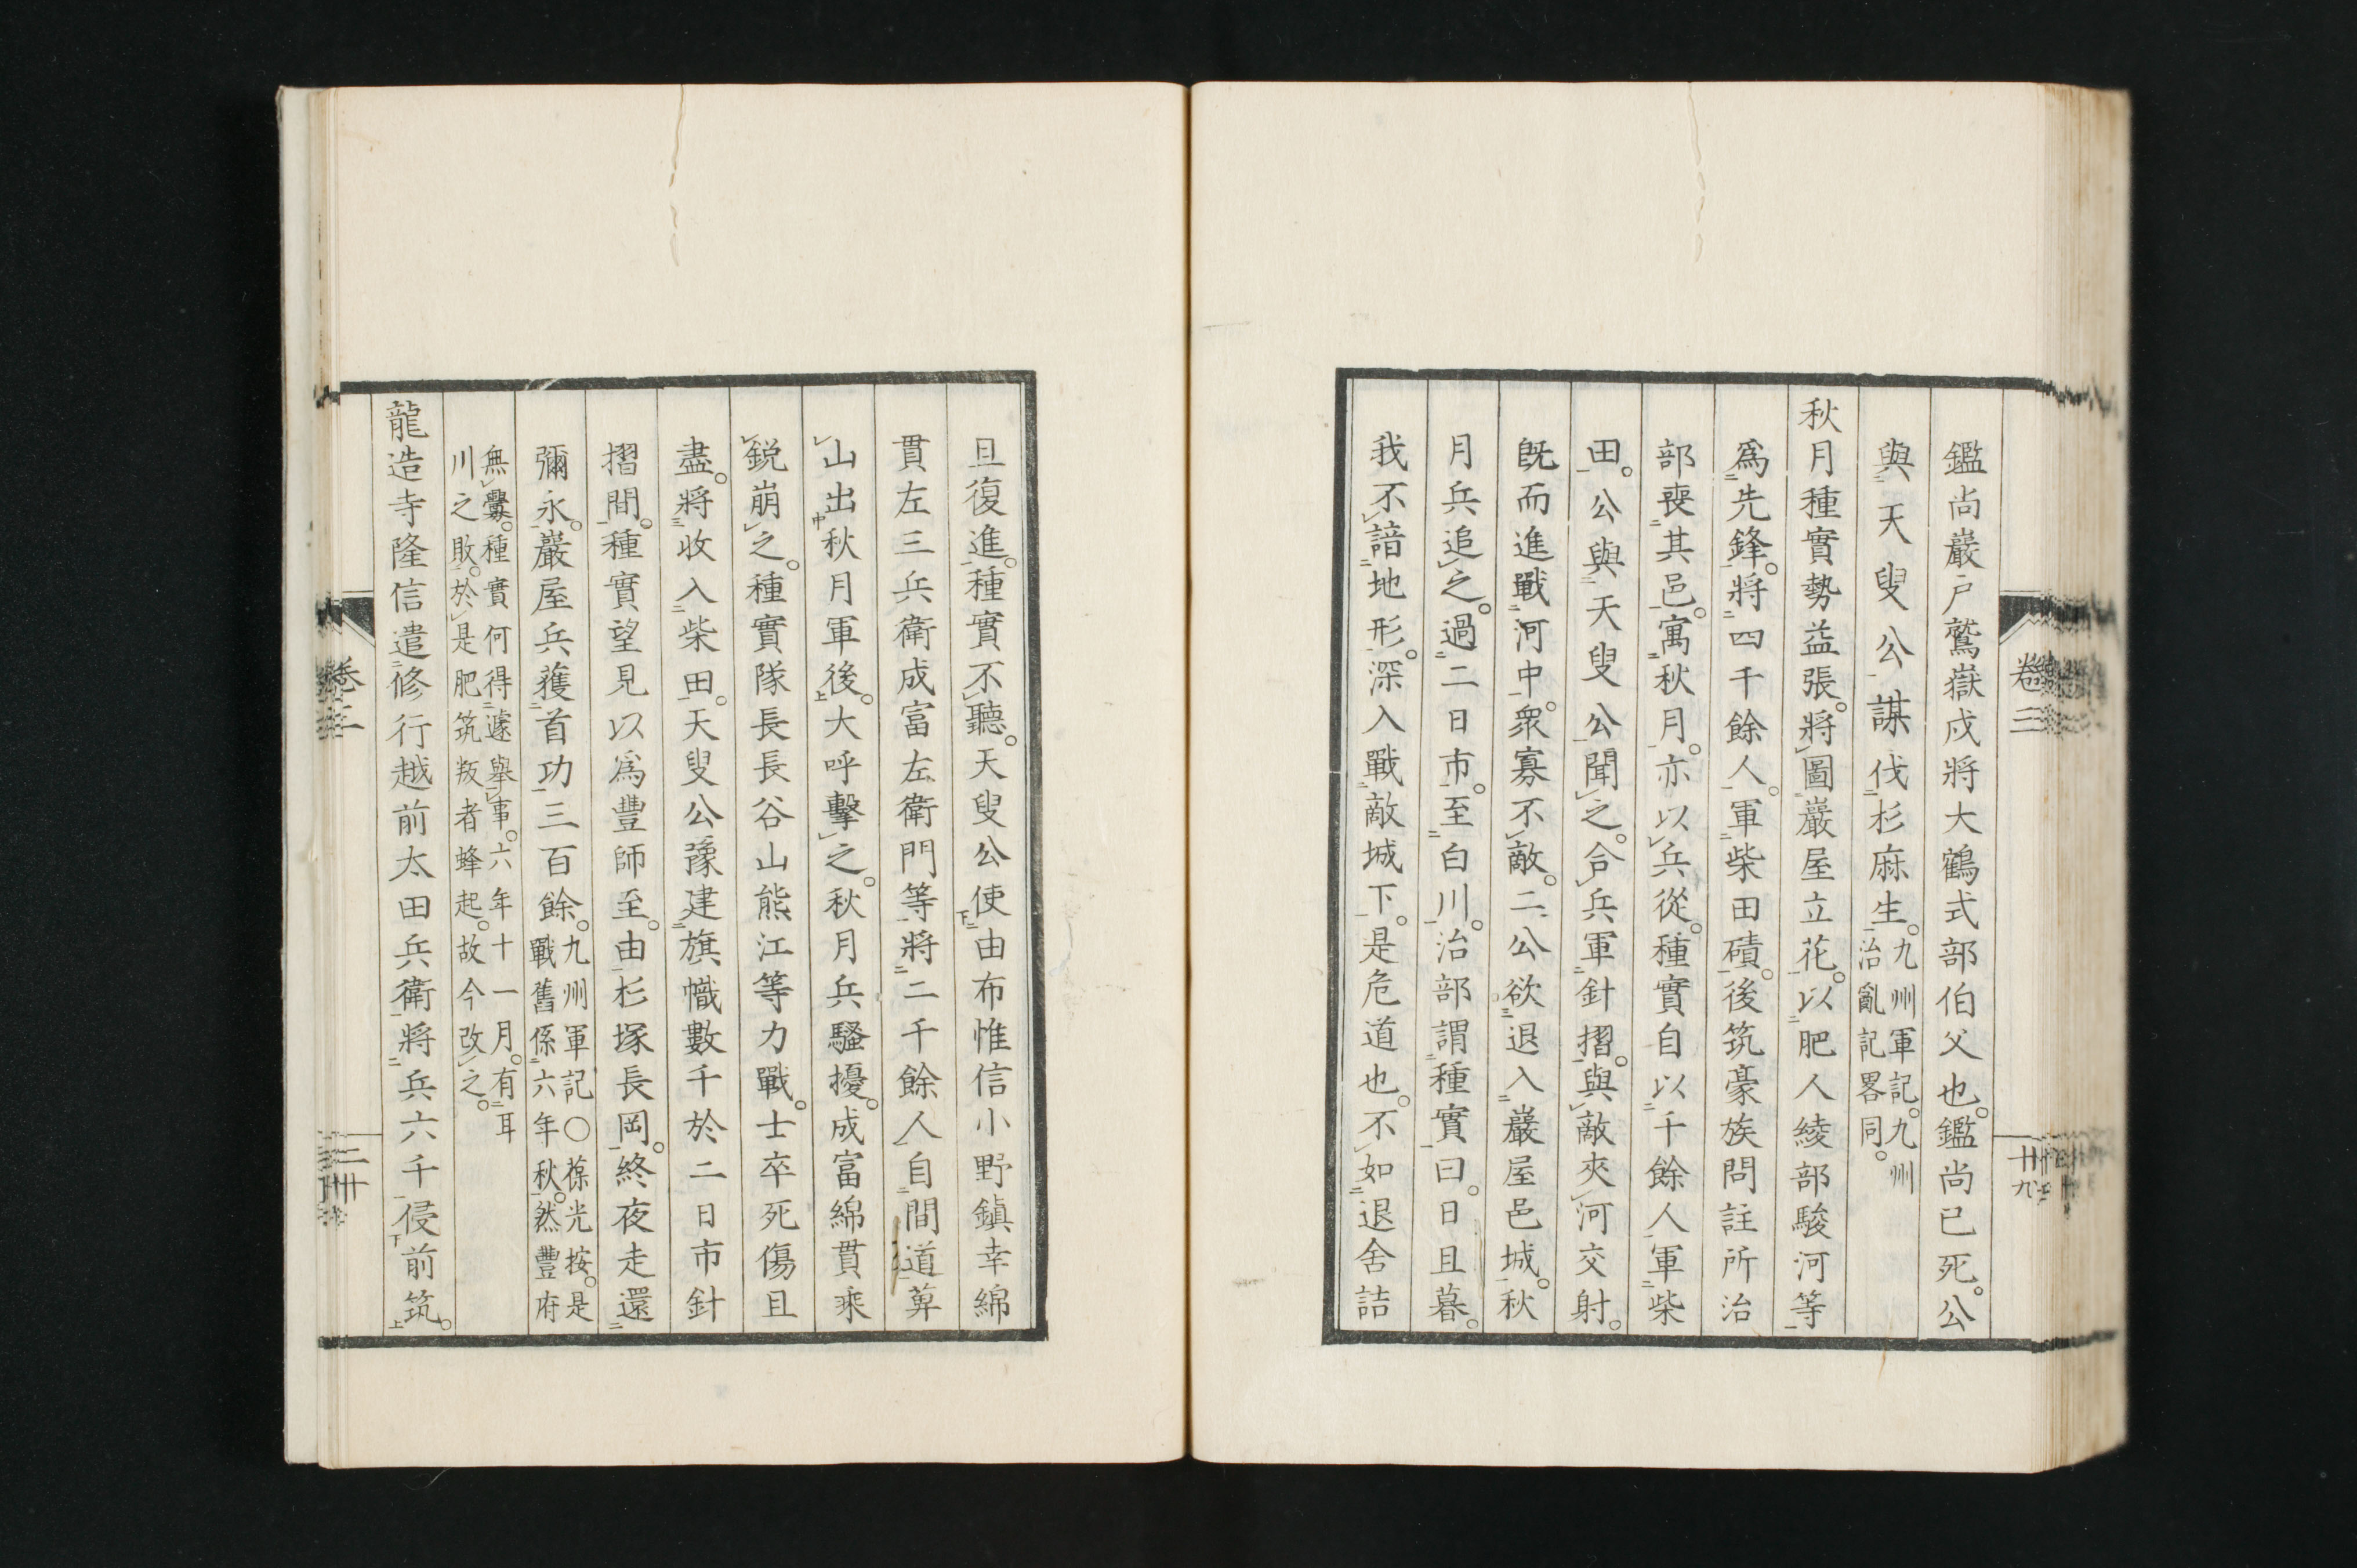 鑑尚巖戸鷲嶽戍將大鶴式部伯父也。鑑尚已死。公
與天叟公謀伐杉麻生。九州軍記。九州
治亂記畧同。
秋月種實勢益張。將圖巖屋立花。以肥人綾部駿河等
爲先鋒。將四千餘人。軍柴田磧。後筑豪族問註所治
部喪其邑。寓秋月。亦以兵從。種實自以千餘人軍柴
田。公與天叟公聞之。合兵軍針摺。與敵夾河交射。
旣而進戰河中。衆寡不敵。二公欲退入巖屋邑城。秋
月兵追之。過二日市。至白川。治部謂種實曰。日且暮。
我不諳地形。深入戰敵城下。是危道也。不如退舍詰
旦復進。種實不聽。天叟公使由布惟信小野鎭幸綿
貫左三兵衛成富左衛門等將二千餘人自間道萆
山出秋月軍後。大呼擊之。秋月兵騷擾。成富綿貫乘
銳崩之。種實隊長長谷山熊江等力戰。士卒死傷且
盡。將收入柴田。天叟公豫建旗幟數千於二日市針
摺間。種實望見以爲豐師至。由杉塚長岡。終夜走還
彌永。巖屋兵獲首功三百餘。九州軍記〇葆光按。是
戰舊係六年秋。然豐府
無釁。種實何得遽擧事。六年十一月。有耳
川之敗。於是肥筑叛者蜂起。故今改之。
龍造寺隆信遣修行越前太田兵衛將兵六千侵前筑。
卷三
卅九